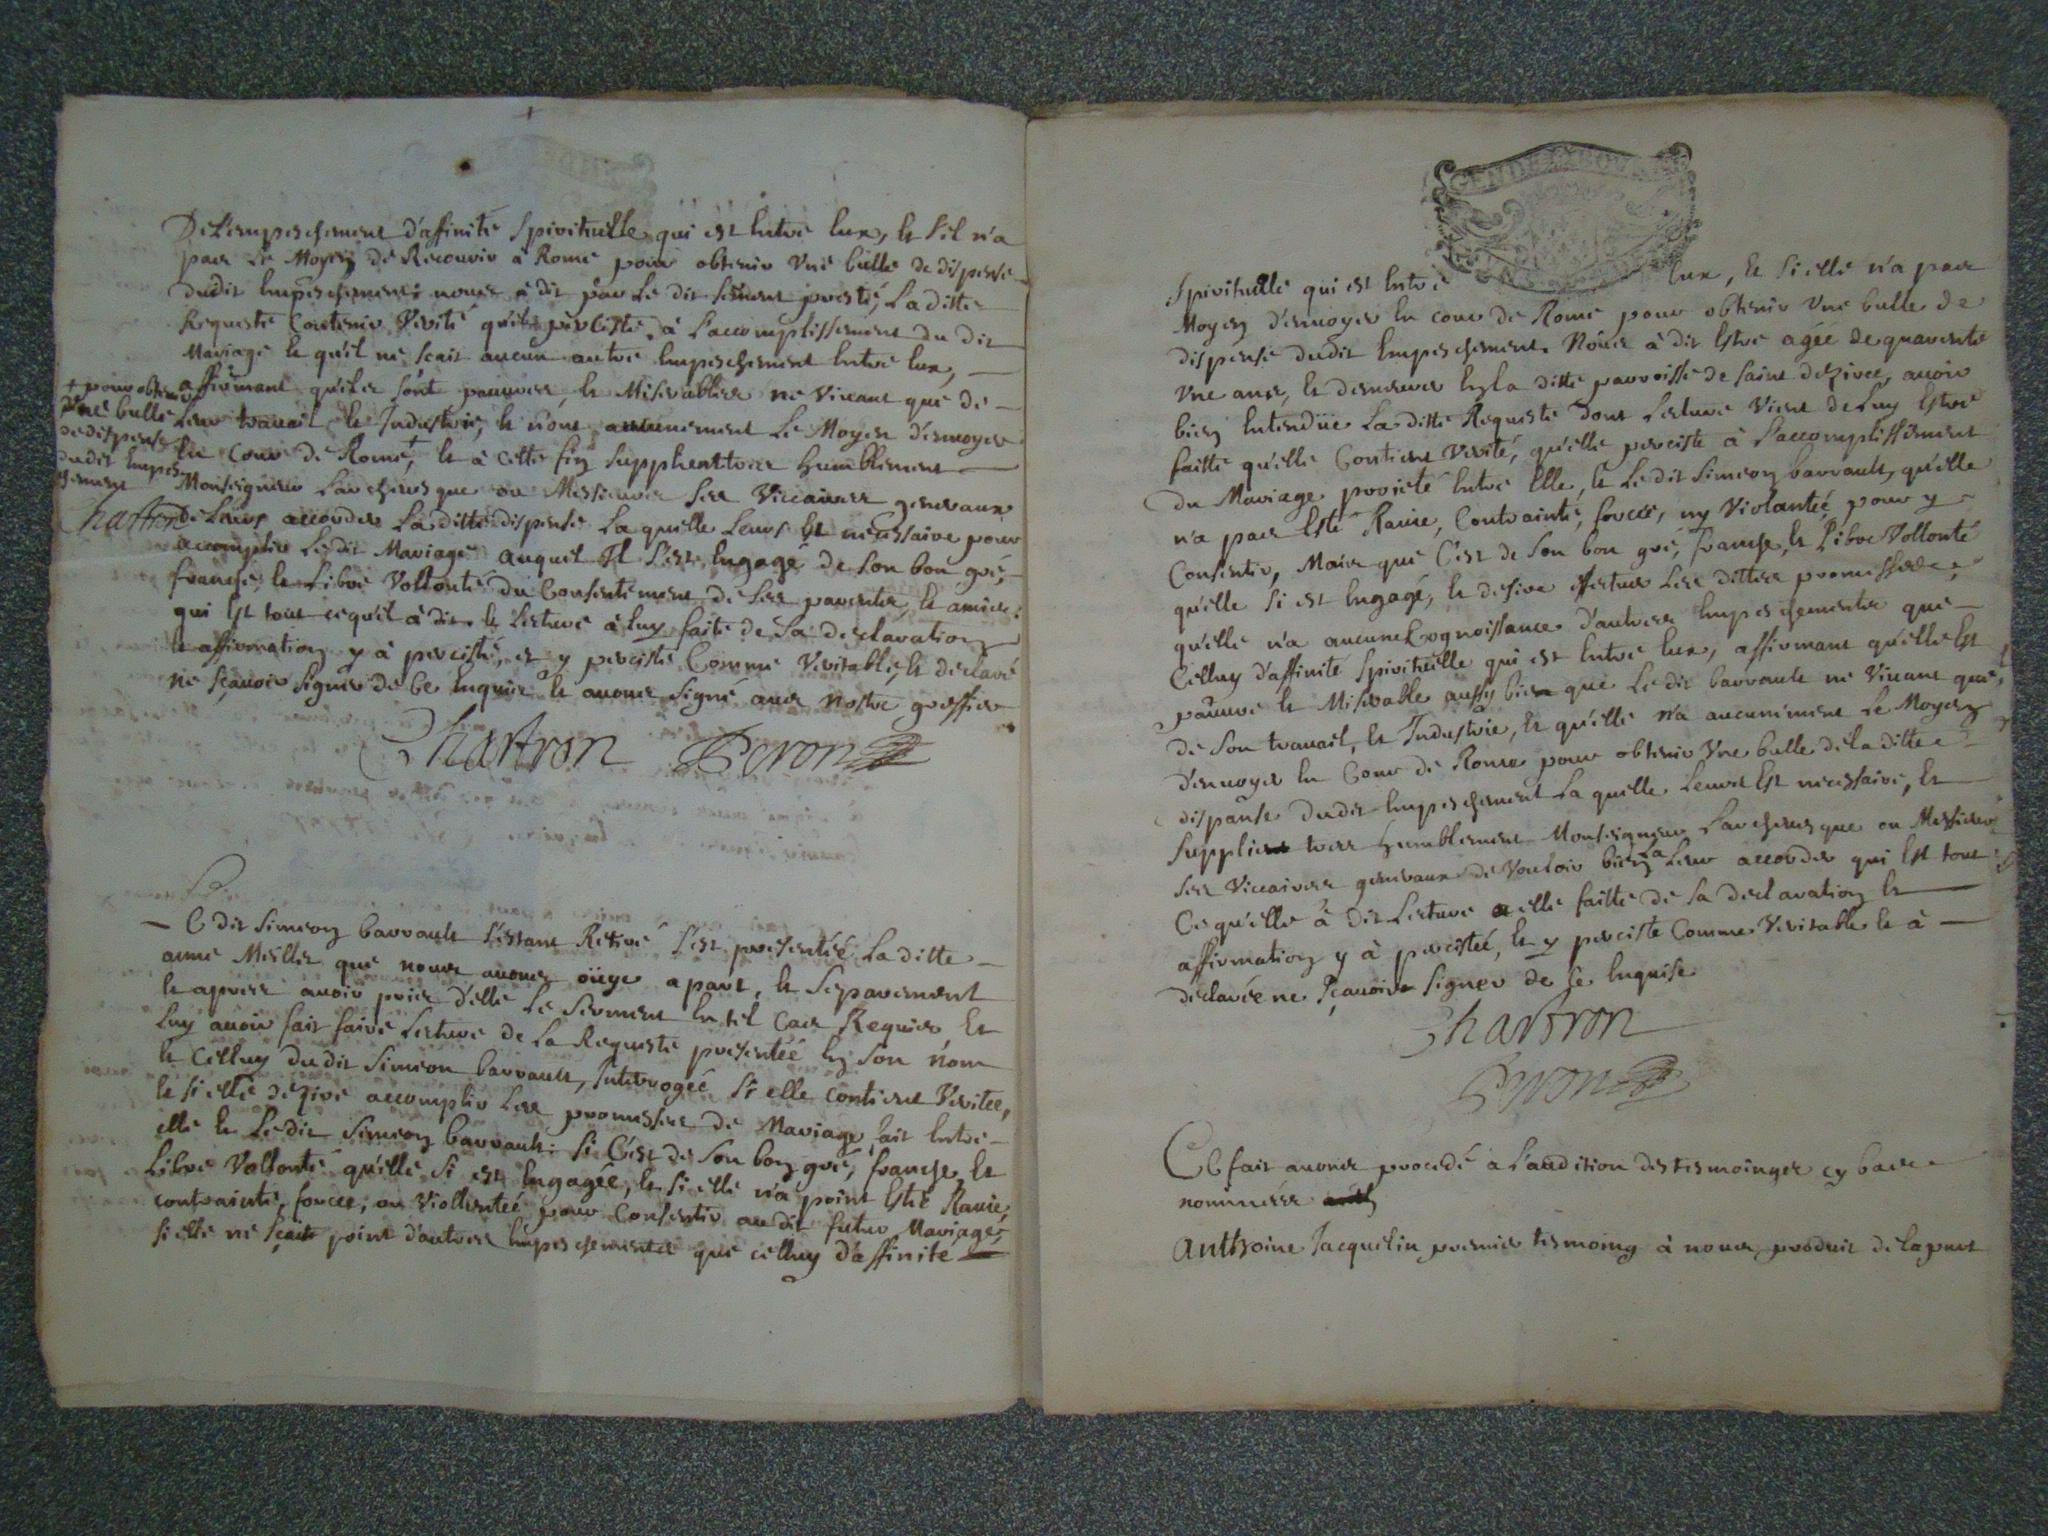 De L'empeschement d'affinité Spirituelle qui est Entre Eux, et s'il n'a
pas Le Moyen de Recourir a Rome pour obtenir Une bulle de dispense
dudit Empeschement. nous à dit par Le dit serment presté, La ditte
Requeste Contenir Verité qu'il perciste à L'accomplissement du dit
Mariage et qu'il ne sçait aucun autre Empeschement Entre Eux,
affirmant qu'iles sont pauvres, et Miserables ne Vivant que de
Leur travail et Industrie, et n'ont aucunement Le Moyen d'envoyer
En Cour de Rome, + et à cette fin supplient tres humblement
+ pour obtenir
Une bulle
de dispense
dudit Empes-
chement
Chartron
Monseigneur L'archevesque ou Messieurs ses Viccaires generaux
de Leurs accorder La ditte dispense La quelle Leurs Est necessaire pour
accomplir Ledit Mariage auquel Il s'est Engagé de son bon gré,
franche, et Libre Vollonté du Consentement de ses parents, et amis.
qui Est tout ce qu'il à dit. et Lecture à Luy faite de sa declaration
et affirmation y à percisté, et y perciste Comme Veritable, et declaré
ne sçavoir signer de ce Enquis et avons signé avec nostre greffier
Chartron Peron
Ledit Simeon barrault s'estant Retiré s'est presentée La ditte
anne Meslier que nous avons oüye apart, et separement
et apres avoir pris d'elle Le Serment En tel Cas Requis Et
Luy avoir fait faire Lecture de La Requeste presentée En son nom
et Celluy du dit Simeon barrault, Interrogée si elle contient Verité,
et si elle dezire accomplir Les promesses de Mariage fait Entre
elle et Ledit Simeon barrault. si C'est de son bon gré, franche, Et
Libre Vollonté qu'elle si est Engagée, et si elle n'a point Esté Ravie,
contrainte, forcée, ou Viollentée pour Consentir au dit futur Mariage,
si elle ne sçait point d'autres Empeschements que celluy d'affinité
GEN DE
Spirituelle qui est Entre Eux, Et si elle n'a pas
Moyen d'envoyer En cour de Rome pour obtenir Une bulle de
dispense dudit Empeschement. Nous à dit Estre agée de quarente
Une ans, Et demeurer En la ditte parroisse de saint dezirée, avoir
bien Entendüe La ditte Requeste dont Lecture Vient de Luy Estre
faitte qu'elle Contient Verité, qu'elle perciste à L'accomplissement
du Mariage projeté Entre Elle, et Le dit Simeon barrault, qu'elle
n'a pas Esté Ravie, Contrainte, forcée, ny Violantée, pour y
Consentir, Mais que C'est de son bon gré, franche, et Libre Vollonté
qu'elle si est Engagé, et desire effectuer Les dittes promesses,
qu'elle n'a aucune Cognoissance d'autres Empeschements que
Celluy d'affinité Spirituelle qui est Entre Eux, affirmant qu'elle Est
pauvre et Miserable aussy bien que Le dit barrault ne Vivant que
de son travail, et Industrie, Et qu'elle n'a aucuniment Le Moyen
d'envoyer En Cour de Rome pour obtenir Une bulle de la ditte
dispanse dudit Empeschement La quelle Leurs Est necessaire, Et
supplie tres humblement Monseigneur L'archevesque ou Messieurs
ses Viccaires generaux de Vouloir bien La Leur accorder qui Est tout
Ce qu'elle à dit Lecture a elle faitte de sa declaration Et
affirmation y à percistée, Et y perciste Comme Veritable et à
declarée ne sçavoir signer de se Enquise
Chartron
Peron
Ce fait avons procedé à L'audition des tesmoinges cy bas
nommées
Anthoine Jacquelin premier tesmoing à nous produit de la part